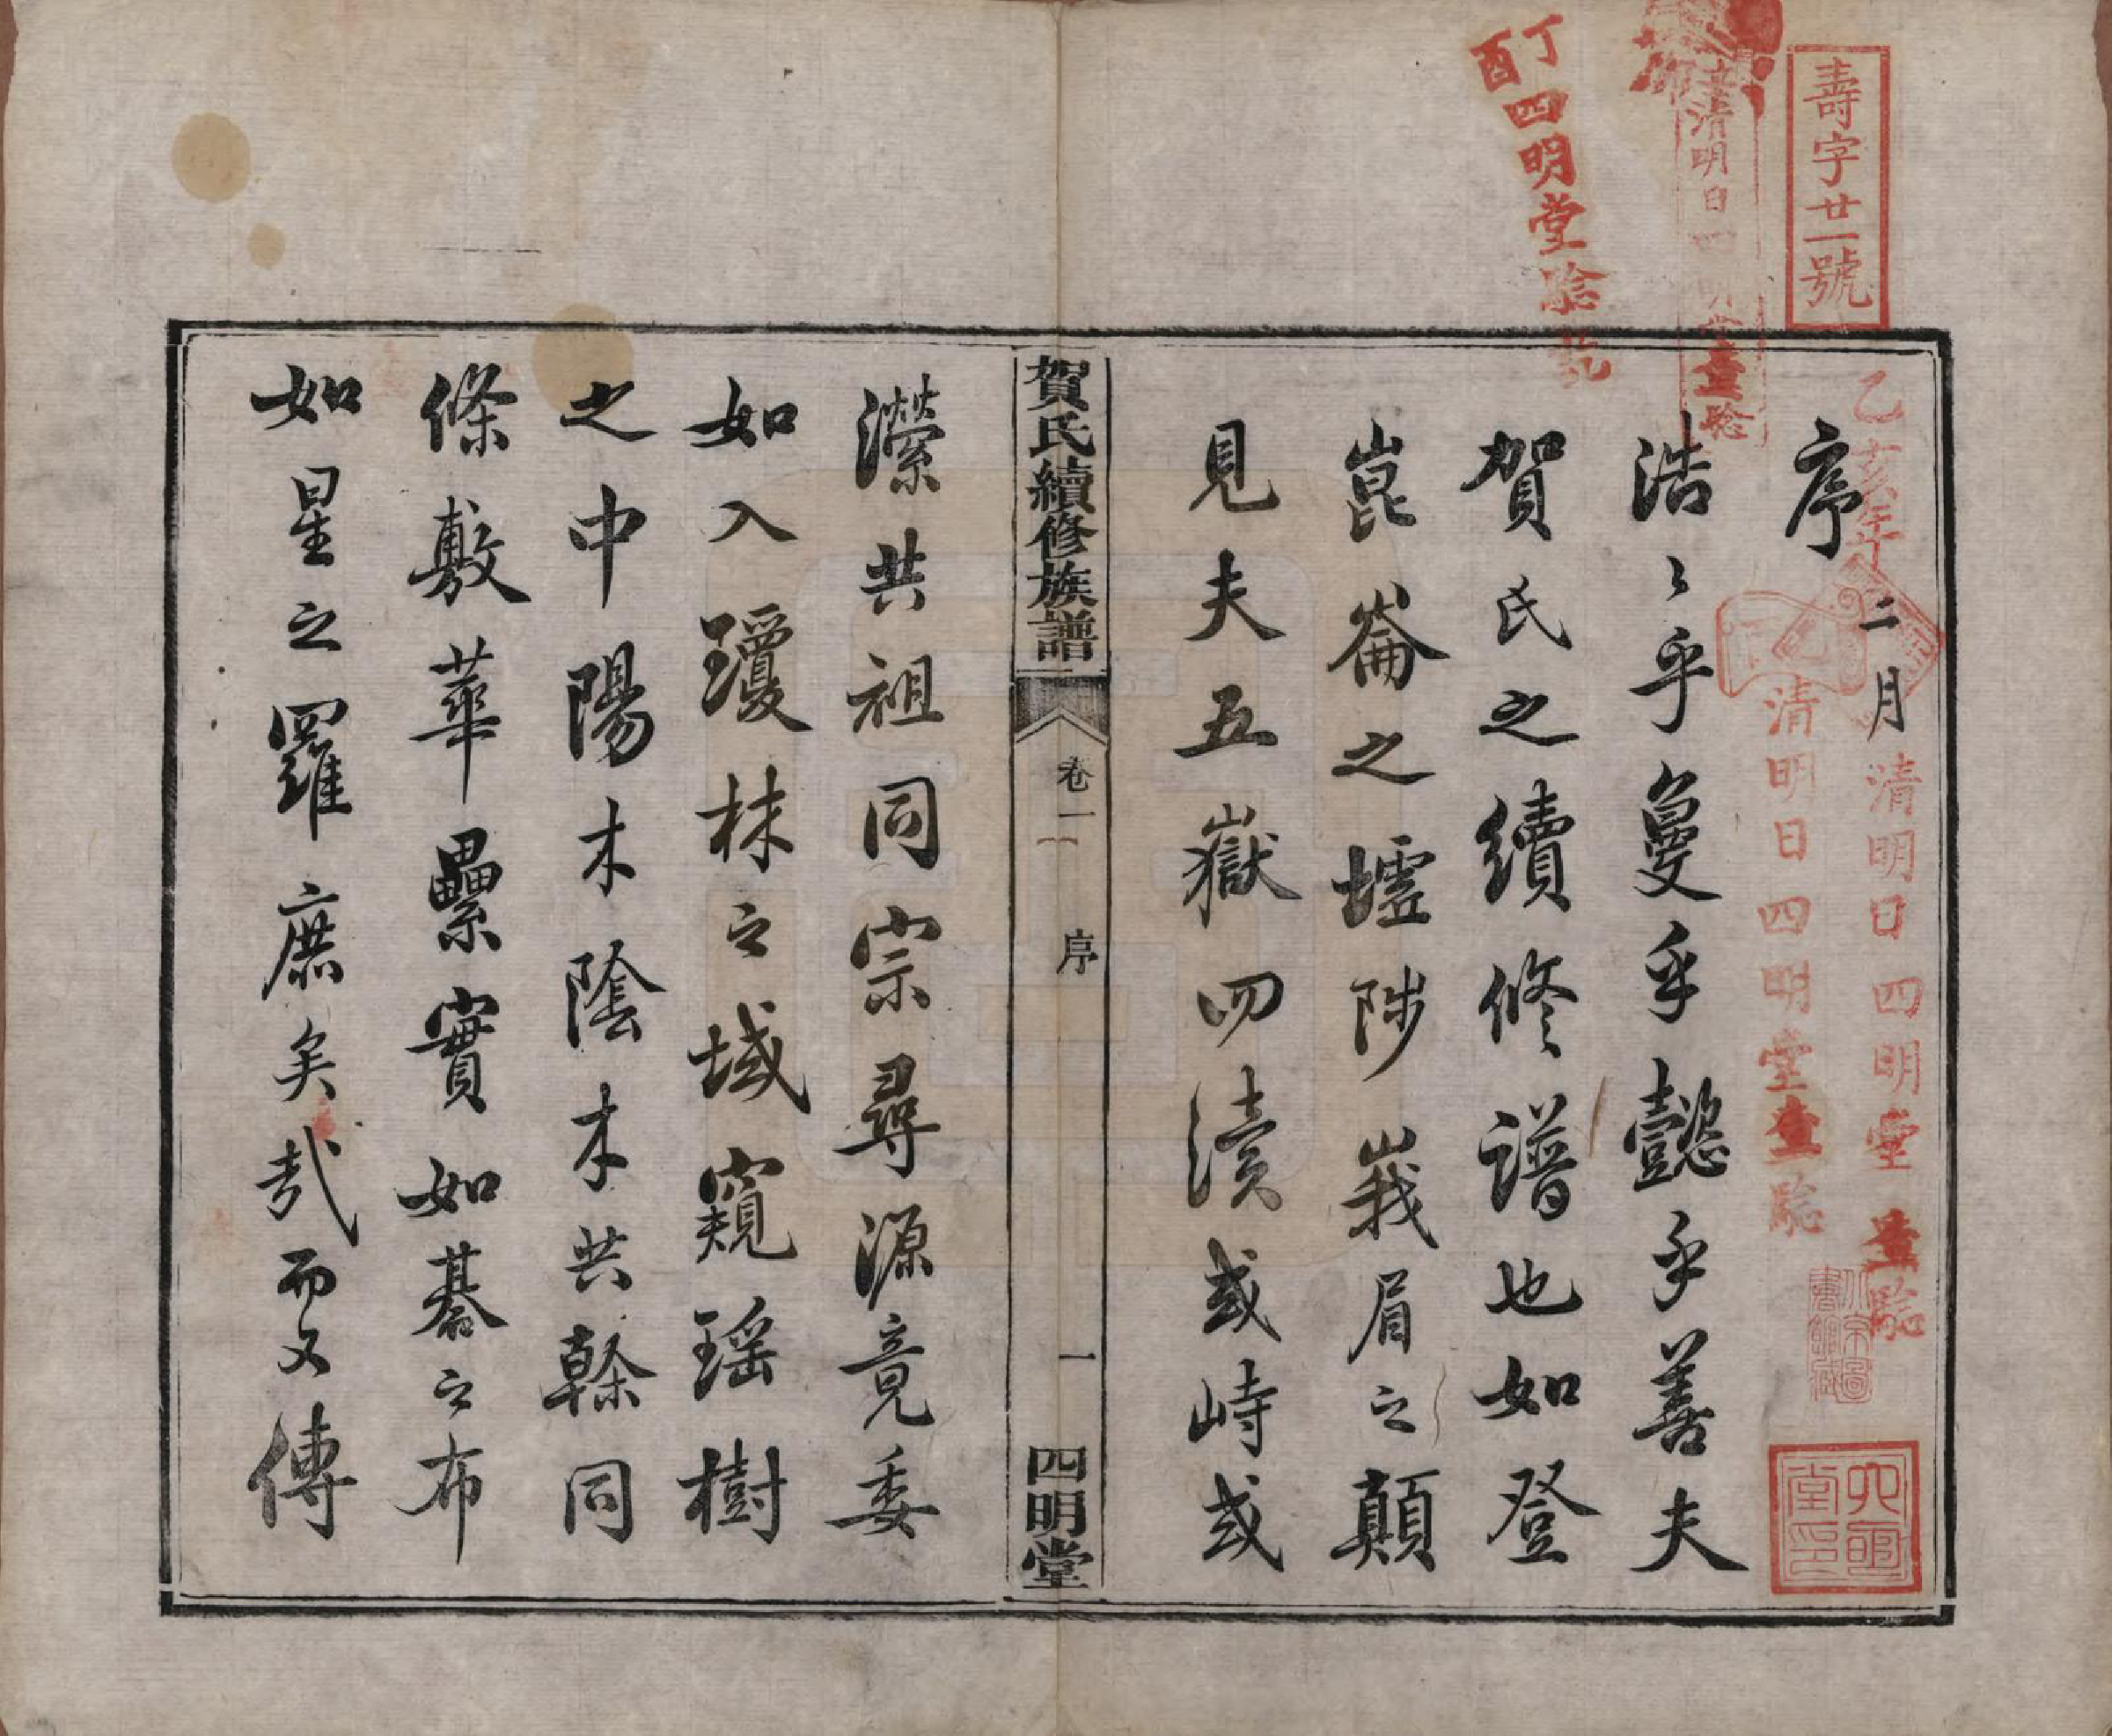 壽字廿一號
丁酉四明堂驗訖
清明日四明堂查驗
乙亥年二月清明日四明堂查驗
清明日四明堂查驗
序
浩〻乎曼乎懿乎善夫
賀氏之續修譜也如登
崑崙之墟陟峩眉之顛
見夫五嶽四瀆或峙或
賀氏續修族譜
卷一
序
一
四明堂
瀠共祖同宗尋源竟委
如入瓊林之域窺瑶樹
之中陽木陰木共榦同
條敷華纍實如碁之布
如星之羅庶矣哉而又傳